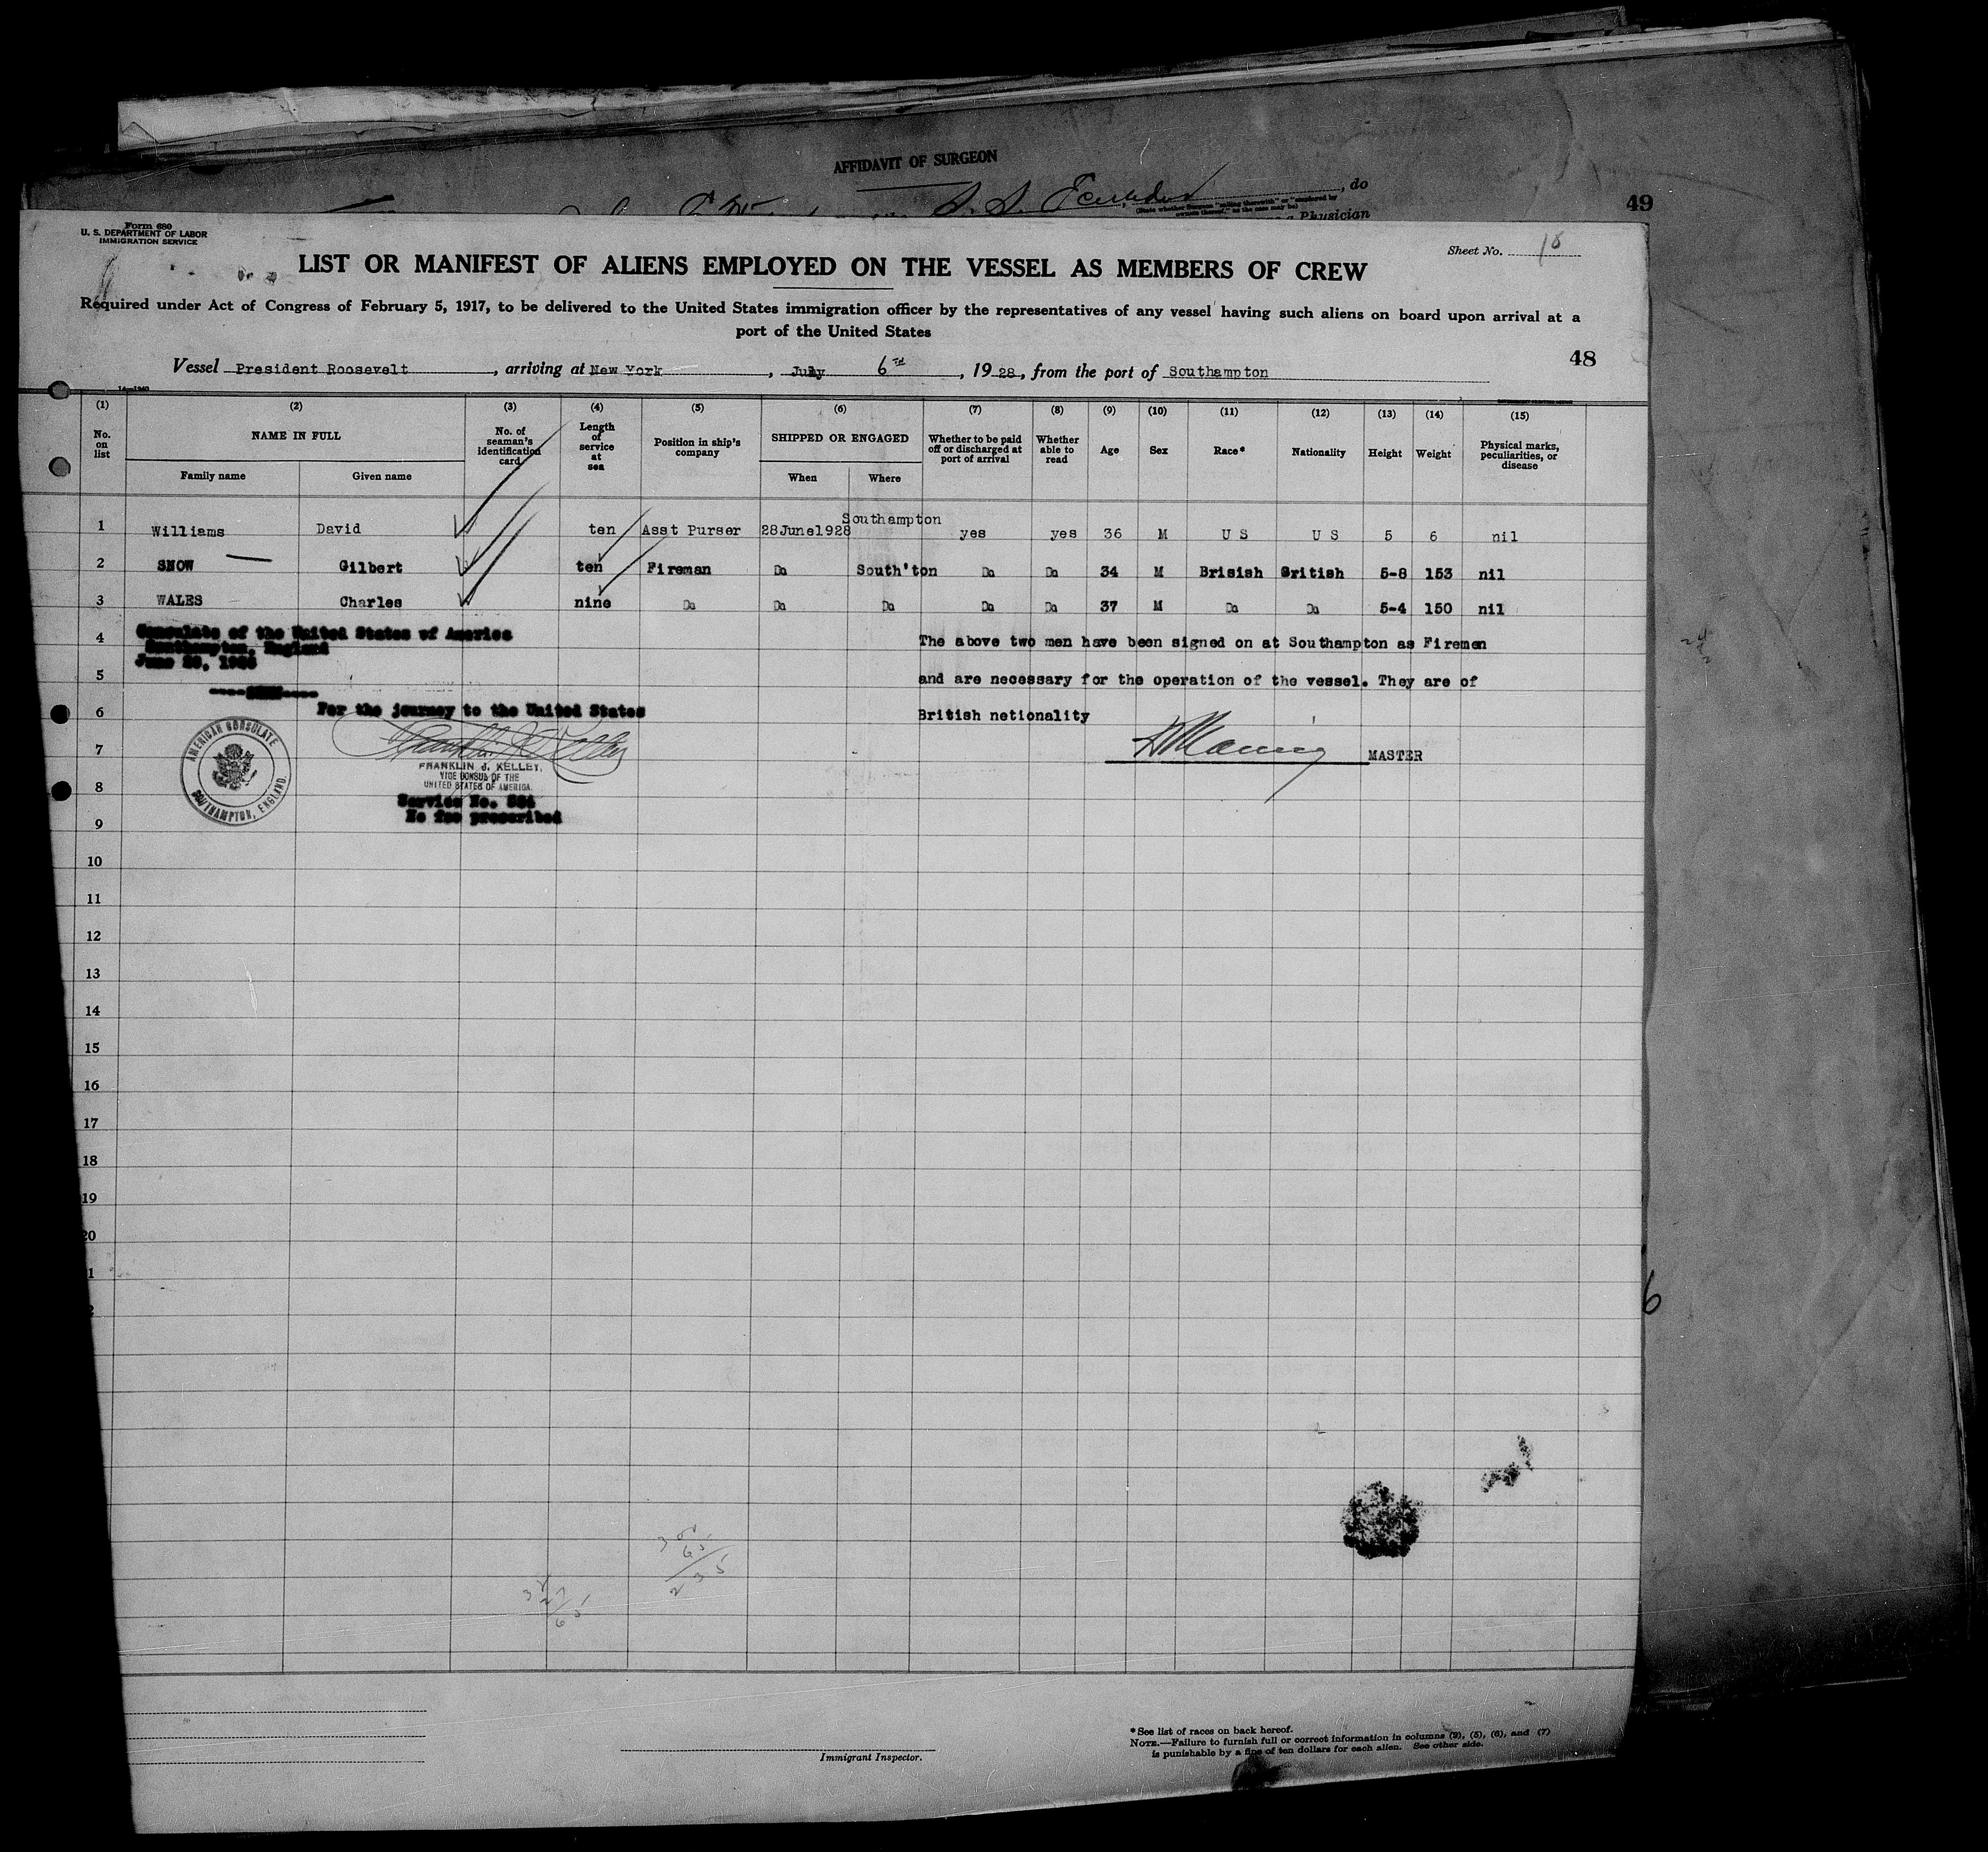 AFFIDAVIT OF SURGEON
S. S. Ecuador, do
(State whether Surgeon "sailing therewith" or "employed by
owners thereof," as the case may be)
a Physician
49
Form 680
U. S. DEPARTMENT OF LABOR
IMMIGRATION SERVICE
Sheet No. 18
LIST OR MANIFEST OF ALIENS EMPLOYED ON THE VESSEL AS MEMBERS OF CREW
Required under Act of Congress of February 5, 1917, to be delivered to the United States immigration officer by the representatives of any vessel having such aliens on board upon arrival at a
port of the United States
48
Vessel President Roosevelt, arriving at New York, July 6TH, 1928, from the port of Southampton
(1) (2) (3) (4) (5) (6) (7) (8) (9) (10) (11) (12) (13) (14) (15)
No. on list NAME IN FULL No. of seaman's identification card Length of service at sea Position in ship's company SHIPPED OR ENGAGED Whether to be paid off or discharged at port of arrival Whether able to read Age Sex Race* Nationality Height Weight Physical marks, peculiarities, or disease
Family name Given name When Where
1 Williams David ten Asst Purser 28June1928 Southampton yes yes 36 M U S U S 5 6 nil
2 SNOW Gilbert ten Fireman Do South'ton Do Do 34 M Brisish Gritish 5-8 153 nil
3 WALES Charles nine Do Do Do Do Do 37 M Do Do 5-4 150 nil
4 Consulate of the United States of America
Southampton, England
The above two men have been signed on at Southampton as Firemen
5 and are necessary for the operation of the vessel. They are of
6 For the journey to the United States
British netionality
7 MASTER
AMERICAN CONSULATE
SOUTHAMPTON, ENGLAND.
FRANKLIN J. KELLEY,
VICE CONSUL OF THE
UNITED STATES OF AMERICA.
8
Service No.
No fee prescribed
9
10
11
12
13
14
15
16
17
18
19
20
1
2
6
300
65
235
27
65
Immigrant Inspector.
*See list of races on back hereof.
NOTE.—Failure to furnish full or correct information in columns (2), (5), (6), and (7)
is punishable by a fine of ten dollars for each alien. See other side.